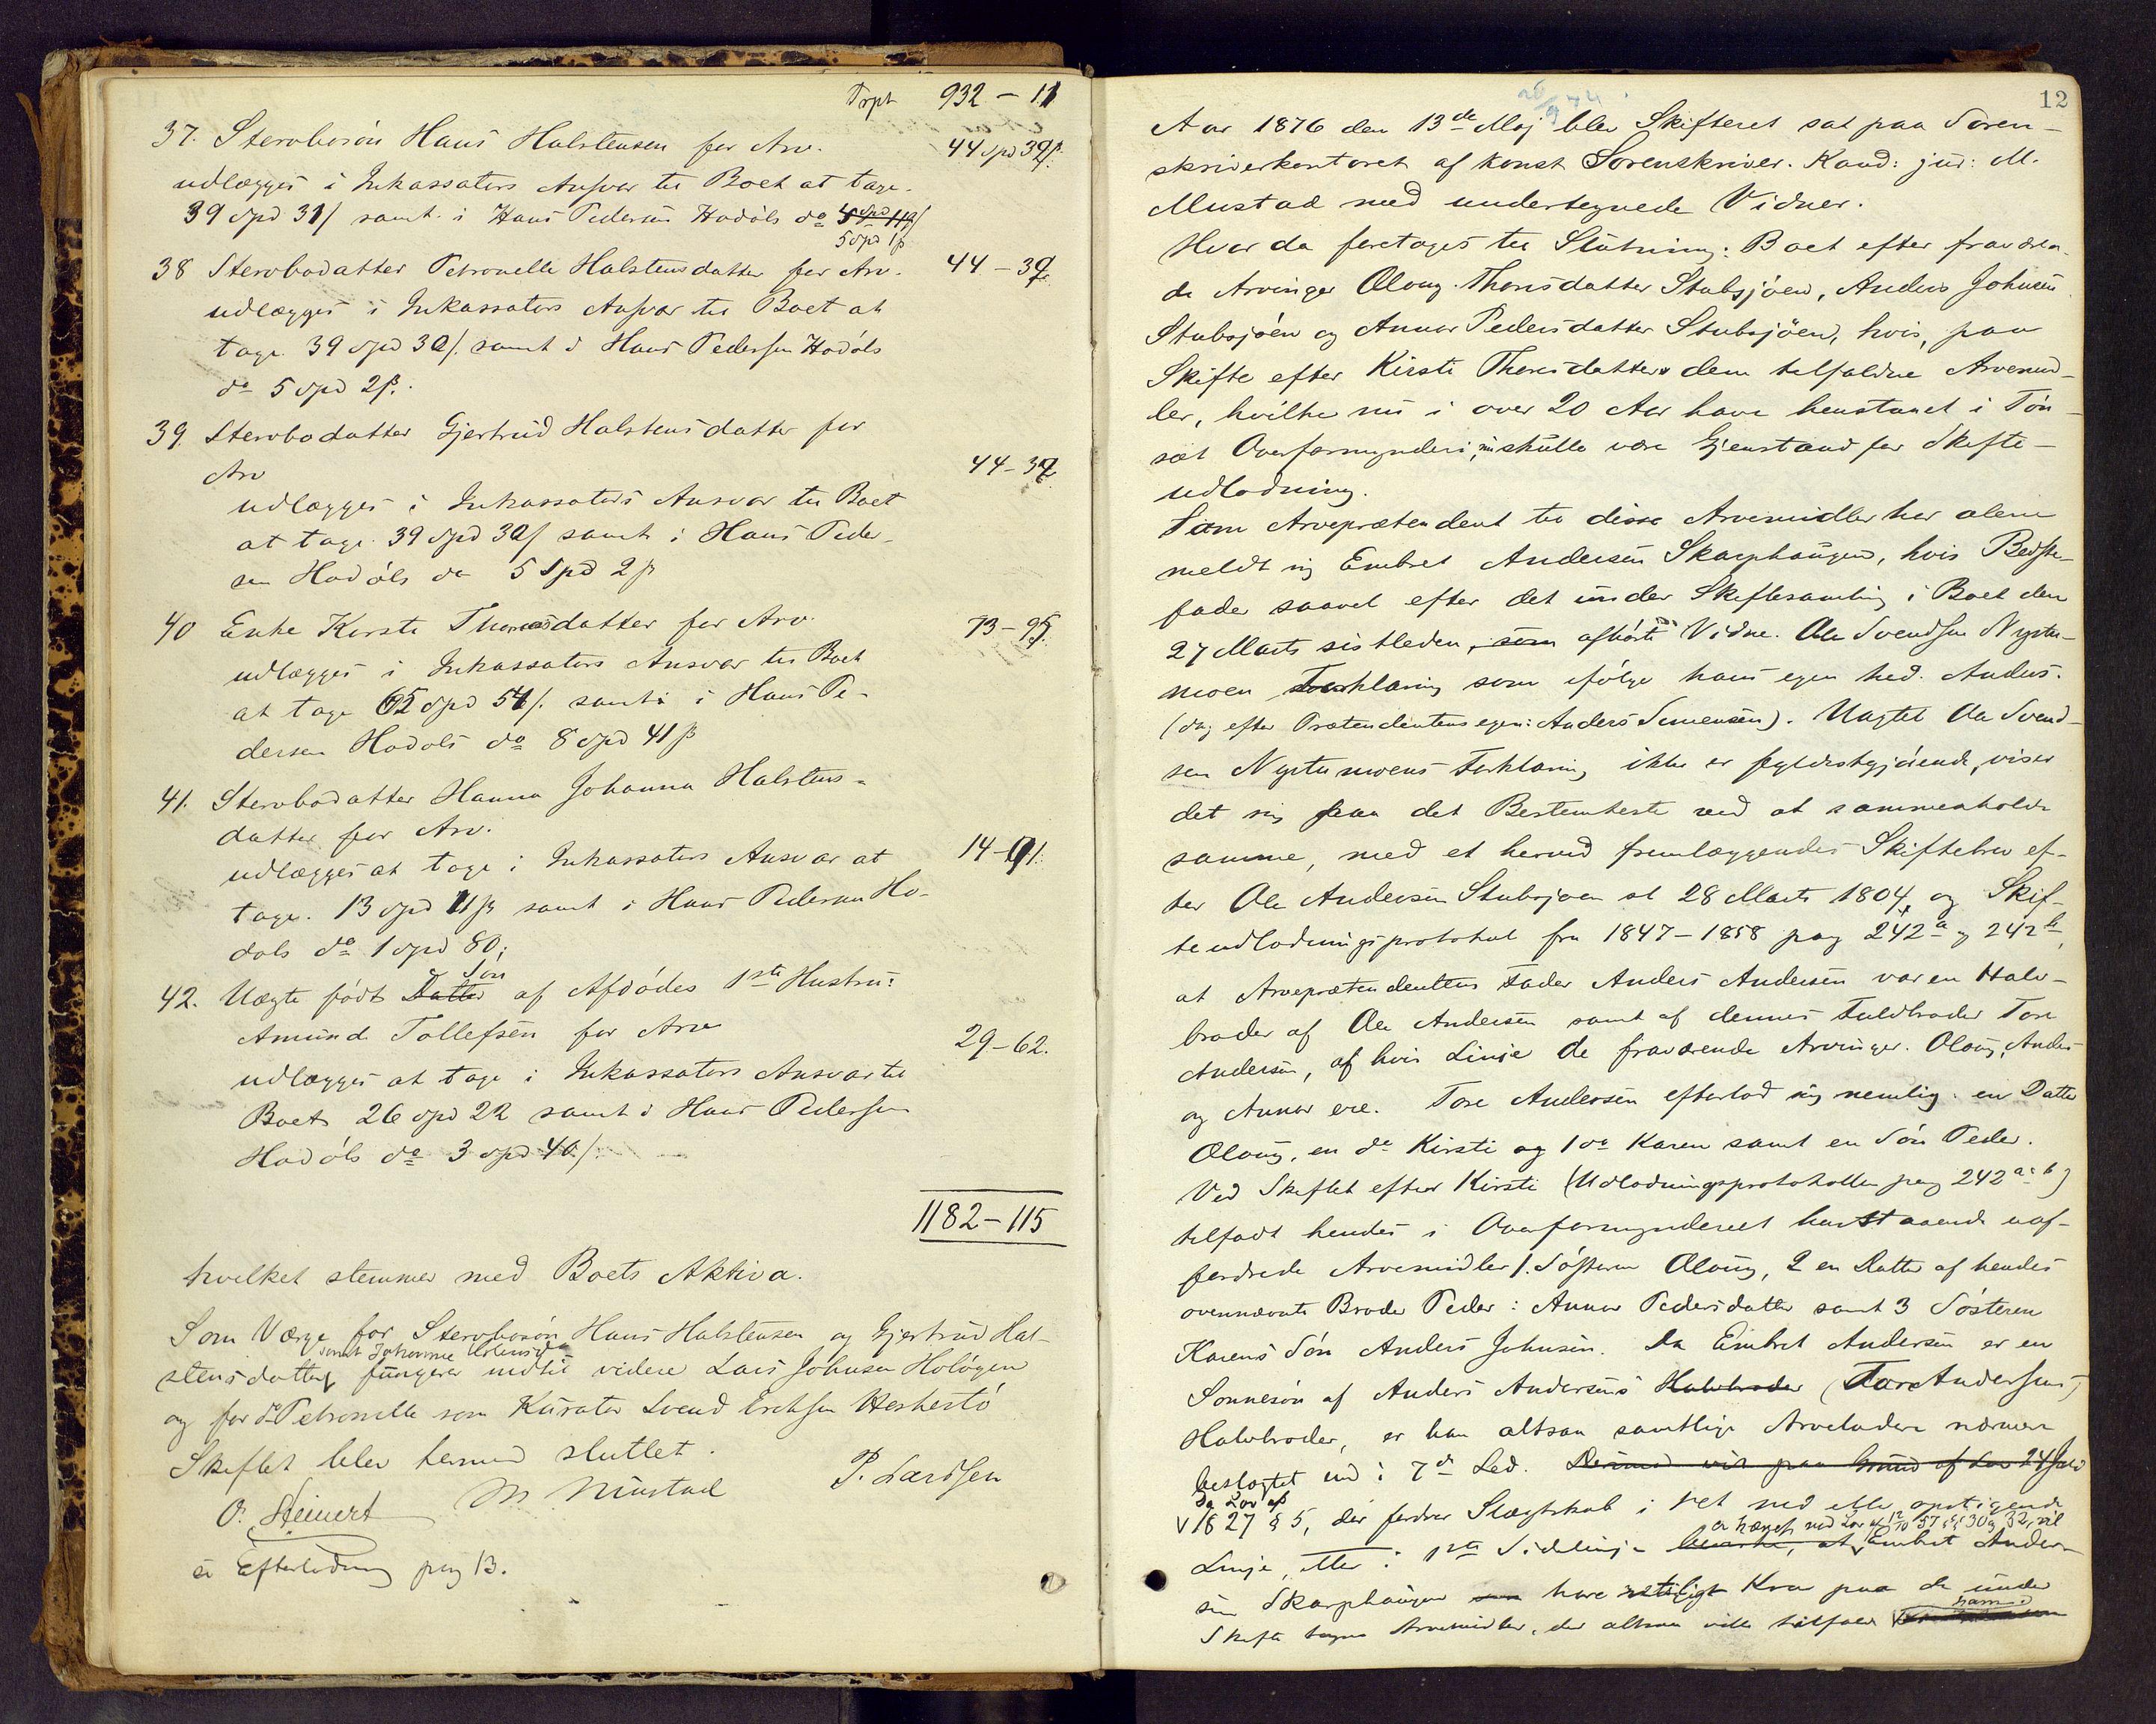 Trpt 932 - 11
37. Sterbosön Hans Halstensen for Arv. 44 Spd 32 ß.
udlægges i Inkassators Ansvar til Boet at tage
39 Spd 31 ß samt i Hans Pedersens Hodöls do
5 Spd 1 ß
38 Sterbodatter Petronelle Halstensdatter for Arv. 44 - 32
udlægges i Inkassators Ansvar til Boet at
tage 39 Spd 30 ß. samt i Hans Pedersen Hodöls
do 5 Spd 2 ß.
39. Sterbodatter Gjertrud Halstensdatter for
Arv 44 - 32
udlægges i Inkassators Ansvar til Boet
at tage 39 Spd 30 ß samt i Hans Peder-
sen Hodöls do 5 Spd 2 ß
40 Enke Kirsti Thoresdatter for Arv. 73 - 95
udlægges i Inkassators Ansvar til Boet
at tage 65 Spd 54 ß. samt i Hans Pe-
dersen Hodöls do 8 Spd 41 ß
41. Sterbodatter Hanna Johanna Halstens-
datter for Arv.
udlægges at tage i Inkassators Ansvar at 14 - 91.
tage. 13 Spd 11 ß samt i Hans Pedersen Ho-
döls do 1 Spd 80;
Sön
42. Uægte födt Datter af Afdödes 1ste Hustru:
Amund Tollefsen for Arv 29 - 62.
udlægges at tage i Inkassators Ansvar til
Boet 26 Spd 22 samt i Hans Pedersen
Hodöls do 3 Spd 40 ß.
1182 - 115
hvilket stemmer med Boets Aktiva.
Som Værge for Sterbosön Hans Halstensen og Gjertrud Hal-
samt Johanne
stensdatter fungerer indtil videre Lars Johnsen Hologen
og for do Petronelle som Kurator Svend Erichsen
Skiftet blev hermed sluttet.
O. Steinert M Mustad P. Larssen
se Efterlodning pag 13.
12
Aar 1876 den 13de Maj blev Skifteret sat paa Soren-
skriverkontoret af konst Sorenskriver. Kand: jur: M.
Mustad med undertegnede Vidner.
Hvor da foretoges til Slutning: Boet efter fraværen-
de Arvinger Oloug Thoresdatter Stubsjöen, Anders Johnsen
Stubsjöen og Anner Pedersdatter Stubsjöen, hvis, paa
Skifte efter Kirsti Thoresdatter dem tilfaldne Arvemid-
ler, hvilke nu i over 20 Aar have henstaaet i Tön-
set Overformynderi, nu skulle være Gjenstand for Skifte-
udlodning.
Som Arveprætendent til disse Arvemidler har alene
meldt sig Embret Andersen Skarphaugen, hvis Bedste-
fader saavel efter det under Skiftesamling i Boet den
27 Marts sistleden, som afhörte Vidne. Ole Svendsen Nystu-
moen Forklaring som ifölge hans egen hed. Anders.
(dog efter Prætendentens egen: Anders Simensen). Uagtet Ole Svend-
sen Nystumoens Forklaring ikke er fyldestgjörende, viser
det sig paa det Bestemteste ved at sammenholde
samme, med et herved fremlæggendes Skiftebrev ef-
ter Ole Andersen Stubsjoen sl 28 Marts 1804, og Skif-
teudlodningsprotokol fra 1847-1858 pag 242 a og 242 b,
at Arveprætendentens Fader Anders Andersen var en Halv-
broder af Ole Andersen samt af dennes Fuldbroder Tore
Andersen, af hvis Linje de fraværende Arvinger. Oloug, Anders
og Anner ere. Tore Andersen efterlod sig nemlig: en Datter
Oloug, en do Kirsti og 1 do Karen samt en Sön Peder.
Ved Skiftet efter Kirsti (Udlodningsprotokollen pag 242 a: b)
tilfaldt hendes i Overformynderiet henstaaende uaf-
fordrede Arvemidler 1. Sösteren Oloug, 2 en Datter af hendes
ovennævnte Broder Peder: Anner Pedersdatter samt 3 Sösteren
Karens Sön Anders Johnsen. Da Embret Andersen er en
Sonnesön af Anders Andersens Halvbroder (Tore Andersens)
Halvbroder, er han altsaa samtlige Arveladere nærmere
beslægtet end i 7de Led. paa Grund af Lov 24 Juli
Da Lov af
1827 § 5, der fordrer Slægtskab i ret ned eller opstigende
er hævet ved Lov af 12/10 57 §§ 30 og 32, vil
Linje, eller i 1ste Sidelinje at Embret Ander-
sen Skarphaugen have retsligt Krav paa de under
ham
Skifte tagne Arvemidler, der altsaa ville tilfalde